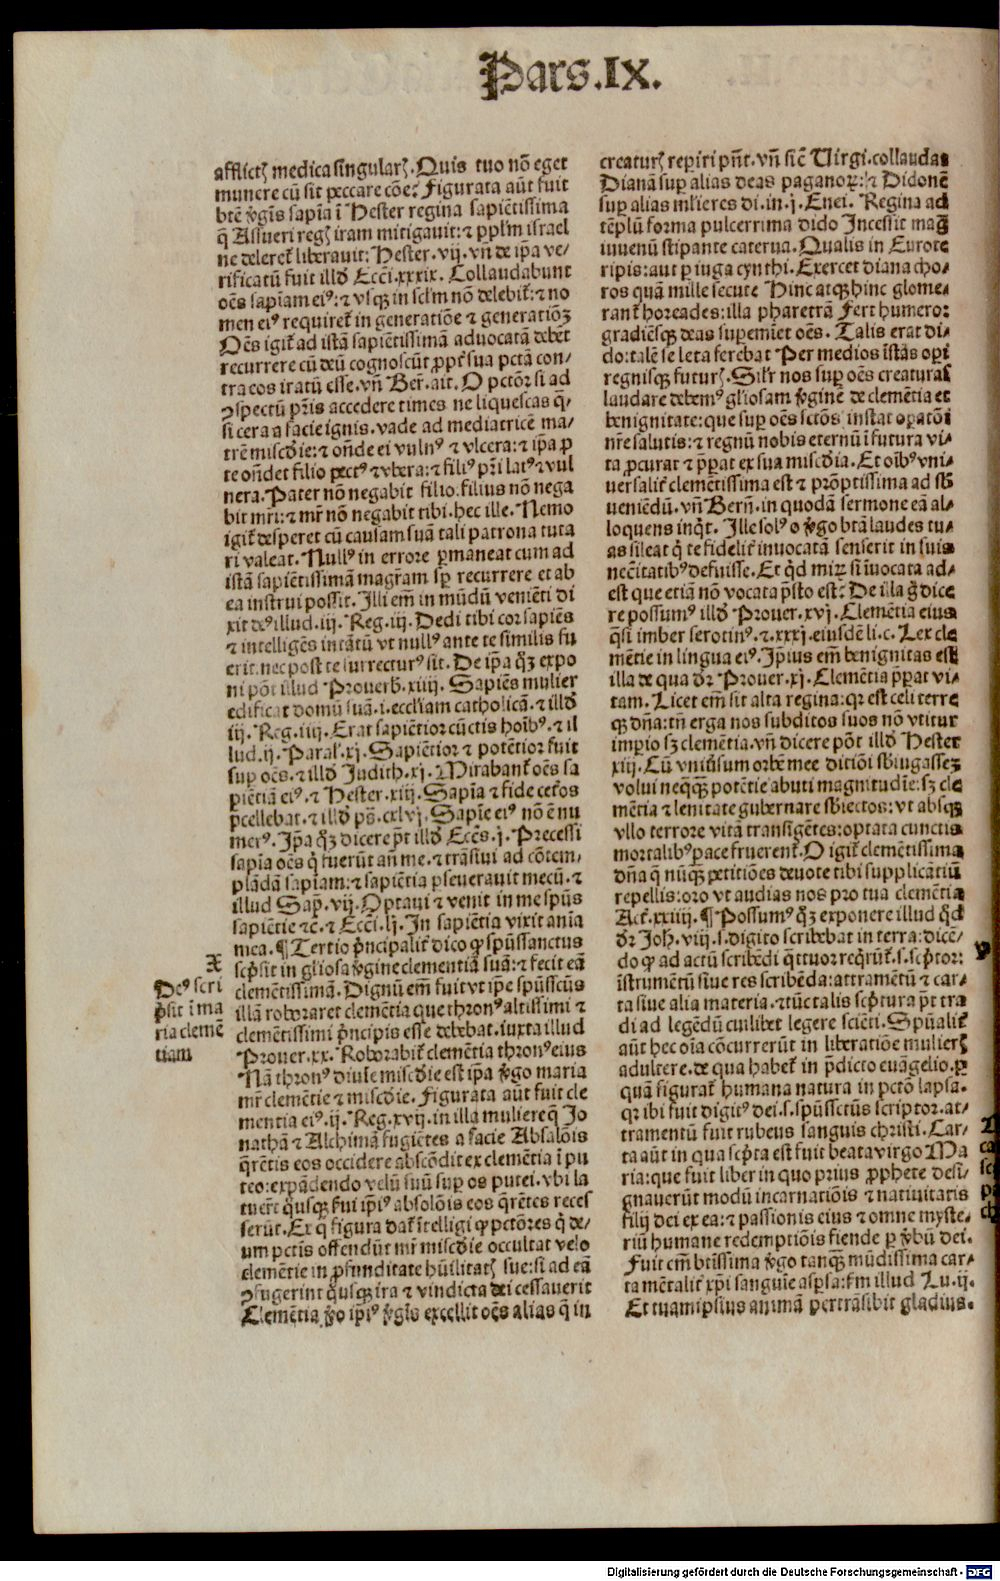 Pars.IX.
afflictꝝ medica singularꝝ. Quis tuo nō eget
munere cū sit peccare cōe? Figurata aūt fuit
btē ꝟgīs sapīa ī Hester regina sapiētissima
q̄ Assueri regꝭ iram mitigauit: ⁊ pplm̄ israel
ne deleret̄ liberauit: Hester. vij. vn̄ de ip̄a ve-
rificatū fuit illđ Ecci. xxxix. Collaudabunt
oēs sapīam eiꝰ: ⁊ vsqꝫ in sclm̄ nō delebit̄: ⁊ no
men eiꝰ requiret̄ in generatiōe ⁊ generatiōꝫ
Oēs igit̄ ad istā sapiētissimā aduocatā debēt
recurrere cū deū cognoscūt ꝓpt̄ sua pctā con-
tra eos iratū esse. vn̄ Ber. ait. O pctōr si ad
ꝯspectū pr̄is accedere times ne liquescas q̄-
si cera a facie ignis. vade ad mediatricē ma-
trē miscđie: ⁊ on̄de ei vulnꝰ ⁊ vlcera: ⁊ ip̄a ꝑ
te on̄det filio pectꝰ ⁊ vbera: ⁊ filiꝰ pr̄i latꝰ ⁊ vul
nera. Pater nō negabit filio. filius nō nega
bit mr̄i: ⁊ mr̄ nō negabit tibi. hec ille. Nemo
igit̄ desperet cū causam suā tali patrona tuta
ri valeat. Nullꝰ in errore ꝑmaneat cum ad
istā sapiētissimā magr̄am sꝑ recurrere et ab
ea instrui possit. Illi em̄ in mūdū veniēti di
xit deꝰ illud. iij. Reg. iij. Dedi tibi cor sapiēs
⁊ intelligēs intātū vt nullꝰ ante te similis fu
erit. nec post te surrecturꝰ sit. De ip̄a q̄ꝫ expo
ni pōt illud Prouerb̄. xiiij. Sapiēs mulier
edificat domū suā. i. eccl̄iam catholicā. ⁊ illđ
iij. Reg. iiij. Erat sapiētior cūctis hoībꝰ. ⁊ il
lud. ij. Paral̄. xj. Sapiētior ⁊ potētior fuit
suꝑ oēs. ⁊ illđ Judith. xj. Mirabant̄ oēs sa
piētiā eiꝰ. ⁊ Hester. xiij. Sapīa ⁊ fide cet̄os
p̄cellebat. ⁊ illđ ps̄. cxlvj. Sapīe eiꝰ nō ē nu
merꝰ. Ip̄a q̄ꝫ dicere p̄t illđ Ecēs. j. Precessi
sapīa oēs q̄ fuerūt an̄ me. ⁊ trāsiui ad cōtem-
plādā sapīam: ⁊ sapiētia ꝑseuerauit mecū. ⁊
illud Sap̄. vij. Optaui ⁊ venit in me spūs
sapiētie ⁊c̄. ⁊ Ecci. lj. In sapiētia vixit anīa
mea. ¶ Tertio p̄ncipalit̄ dico ꝙ spūssanctus
scp̄sit in gl̄iosa ꝟgine clementiā suā: ⁊ fecit eā
clemētissimā. Dignū em̄ fuit vt ip̄e spūsscūs
illā roboraret clemētia que thronꝰ altissimi ⁊
clemētissimi p̄ncipis esse debebat. iuxta illud
Prouer. xx. Roborabit̄ clemētia thronꝰ eius
Nā thronꝰ diuīe miscđie est ip̄a ꝟgo maria
mr̄ clemētie ⁊ miscđie. Figurata aūt fuit cle
mentia eiꝰ. ij. Reg. xvij. in illa muliere q̄ Jo
nathā ⁊ Alchimā fugiētes a facie Absalōis
q̄rētis eos occidere abscōdit ex clemētia ī pu
teo: expādendo velū suū suꝑ os putei. vbi la
tuer̄t q̄usqꝫ ẜui ip̄iꝰ absolōis eos q̄rētes reces
serūt. Et q̄ figura dat̄ ītelligi ꝙ pctōres q̄ de-
um pctis offendūt mr̄ miscđie occultat velo
clemētie in ꝓfunditate hūilitatꝭ sue: si ad eā
ꝯfugerint q̄usqꝫ ira ⁊ vindicta dei cessauerit
Clemētia ꝟo ip̄iꝰ ꝟgīs excellit oēs alias q̄ in
X
Deꝰ scri
p̄sit ī ma
ria clemē
tiam
creaturꝭ reꝑiri pn̄t. vn̄ sic̄ Virgi. collaudas
Dianā suꝑ alias deas paganoꝝ: ⁊ Didonē
suꝑ alias ml̄ieres di. in. j. Enei. Regina ad
tēplū forma pulcerrima dido Incessit maḡ
iuuenū stipante caterua. Qualis in Eurote
ripis: aut ꝑ iuga cynthi. Exercet diana cho-
ros quā mille secute Hinc atqꝫ hinc glome-
rant̄ horeades: illa pharetrā Fert humero:
gradiēsqꝫ deas suꝑemīet oēs. Talis erat di-
do: talē se leta ferebat Per medios īstās oꝑi
regnisqꝫ futurꝭ. Silr̄ nos suꝑ oēs creaturas
laudare debemꝰ gl̄iosam ꝟginē de clemētia et
benignitate: que suꝑ oēs sctōs instat oꝑatōi
nr̄e salutis: ⁊ regnū nobis eternū ī futura vi-
ta ꝓcurat ⁊ p̄ꝑat ex sua miscđia. Et oībꝰ vni-
uersalit̄ clemētissima est ⁊ prōptissima ad sb̄
ueniēdū. vn̄ Bern̄. in quodā sermone eā al-
loquens inq̄t. Ille solꝰ o ꝟgo btā laudes tu-
as sileat q̄ te fidelit̄ inuocatā senserit in suis
nec̄itatibꝰ defuisse. Et q̄d miꝝ si īuocata ad-
est que etiā nō vocata p̄sto est? De illa g̊ dice
re possumꝰ illđ Prouer. xvj. Clemētia eius
q̄si imber serotinꝰ. ⁊. xxxj. eiusdē li. c. Lex cle
mētie in lingua eiꝰ. Ip̄ius em̄ benignitas est
illa de qua dr̄ Prouer. xj. Clemētis p̄ꝑat vi-
tam. Licet em̄ sit alta regina: qꝛ est celi terre
qꝫ dn̄a: tn̄ erga nos subditos suos nō vtitur
imꝑio sꝫ clemētia. vn̄ dicere pōt illđ Hester
xiij. Cū vniuꝟsum orbē mee ditiōi sb̄iugasseꝫ
volui neq̄qꝫ potētie abuti magnitudīe: sꝫ cle
mētia ⁊ lenitate gubernare sb̄iectos: vt absqꝫ
vllo terrore vitā transigētes: optata cunctis
mortalibꝰ pace fruerent̄. O igit̄ clemētissima
dn̄a q̄ nūqꝫ petitiōes deuote tibi supplicātiū
repellis: oro vt audias nos pro tua clemētia
Act̄. xxiiij. ¶ Possumꝰ q̄ꝫ exponere illud q̄d
dr̄ Joh̄. viij. s. digito scribebat in terra: dicē-
do ꝙ ad actū scribēdi q̄ttuor reqr̄ūt̄. s. scp̄tor:
īstrumētū siue res scribēda: attramētū ⁊ car-
ta siue alia materia. ⁊ tūc talis scp̄tura p̄t tra
di ad legēdū cuilibet legere sciēti. Spūalit̄
aūt hec oīa cōcurrerūt in liberatiōe mulierꝭ
adultere. de qua habet̄ in p̄dicto euāgelio. ꝑ
quā figurat̄ humana natura in pctō lapsa.
qꝛ ibi fuit digitꝰ dei. s. spūssctūs scriptor. at-
tramentū fuit rubeus sanguis christi. Car-
ta aūt in qua scp̄ta est fuit beata virgo Ma
ria: que fuit liber in quo prius ꝓphete desi-
gnauerūt modū incarnatiōis ⁊ natiuitatis
filij dei ex ea: ⁊ passionis eius ⁊ omne myste-
riū humane redemptiōis fiende ꝑ ꝟbū dei.
Fuit em̄ btīssima ꝟgo tanqꝫ mūdissima car-
ta mētalit̄ xp̄i sanguīe asꝑsa: fm̄ illud Lu. ij.
Et tuam ipsius animā pertrāsibit gladius.
Digitalisierung gefördert durch die Deutsche Forschungsgemeinschaft - DFG